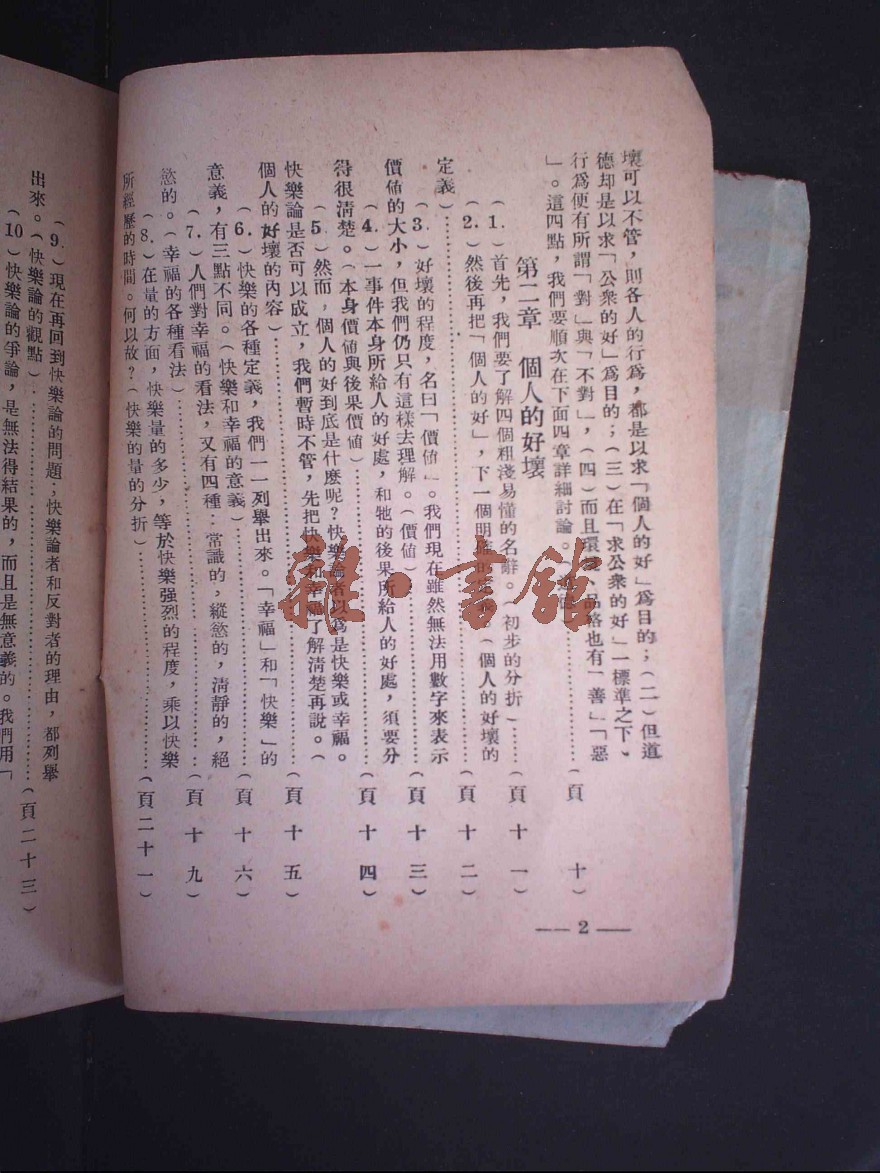 壞可以不管，則各人的行爲，都是以求「個人的好」爲目的；（二）但道
德却是以求「公衆的好」爲目的；（三）在「求公衆的好」一標準之下，
行爲便有所謂「對」與「不對」，（四）而且環、品格也有「善」「惡
」。這四點，我們要順次在下面四章詳細討論。（頁十）
第二章　個人的好壞
（1.）首先，我們要了解四個粗淺易懂的名辭。（初步的分折）……（頁十一）
（2.）然後再把「個人的好」，下一個明（個人的好壞的
定義）……（頁十二）
（3.）好壞的程度，名曰「價値」。我們現在雖然無法用數字來表示
價値的大小，但我們仍只有這樣去理解。（價値）……（頁十三）
（4.）一事件本身所給人的好處，和牠的後果所給人的好處，須要分
得很淸楚。（本身價値與後果價値）……（頁十四）
（5）然而，個人的好到底是什麼呢？快樂論者以爲是快樂或幸福。
快樂論是否可以成立，我們暫時不管，先把快樂和幸福了解淸楚再說。（
個人的好壞的內容）……（頁十五）
（6.）快樂的各種定義，我們一一列舉出來。「幸福」和「快樂」的
意義，有三點不同。（快樂和幸福的意義）……（頁十六）
（7.）人們對幸福的看法，又有四種：常識的，縱慾的，淸靜的，絕
慾的。（幸福的各種看法）……（頁十九）
（8.）在量的方面，快樂量的多少，等於快樂强烈的程度，乘以快樂
所經歷的時間。何以故？（快樂的量的分折）……（頁二十一）
—— 2 ——
（9.）現在再回到快樂論的問題；快樂論者和反對者的理由，都列舉
出來。（快樂論的觀點）……（頁二十三）
（10）快樂論的爭論，是無法得結果的，而且是無意義的。我們用「
雜·書館